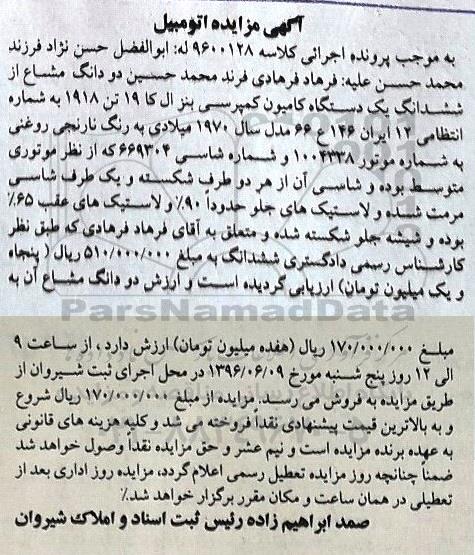 آگهی مزایده اتومبیل
به موجب پرونده اجرائی کلاسه ۹۶۰۰۱۲۸ له: ابوالفضل حسن نژاد فرزند
محمد حسن علیه: فرهاد فرهادی فرند محمد حسین دو دانگ مشاع از
ششدانگ یک دستگاه کامیون کمپرسی بنز ال کا ۱۹ تن ۱۹۱۸ به شماره
انتظامی ۱۲ ایران ۱۴۶ ع ۶۶ مدل سال ۱۹۷۰ میلادی به رنگ نارنجی روغنی
به شماره موتور ۱۰۰۴۳۳۸ و شماره شاسی ۶۶۹۳۰۴ که از نظر موتوری
متوسط بوده و شاسی آن از هر دو طرف شکسته و یک طرف شاسی
مرمت شده و لاستیک های جلو حدودا ۹۰٪ و لاستیک های عقب ۶۵٪
بوده و شیشه جلو شکسته شده و متعلق به آقای فرهاد فرهادی که طبق نظر
کارشناس رسمی دادگستری ششدانگ به مبلغ ۵۱۰/۰۰۰/۰۰۰ ریال ( پنجاه
و یک میلیون تومان) ارزیابی گردیده است و ارزش دو دانگ مشاع آن به
ParsNamadData
مبلغ ۱۷۰/۰۰۰/۰۰۰ ریال (هفده میلیون تومان) ارزش دارد ، از ساعت ۹
الی ۱۲ روز پنج شنبه مورخ ۱۳۹۶/۰۶/۰۹ در محل اجرای ثبت شیروان از
طریق مزایده به فروش می رسد. مزایده از مبلغ ۱۷۰/۰۰۰/۰۰۰ ریال شروع
و به بالاترین قیمت پیشنهادی نقداً فروخته می شد و کلیه هزینه های قانونی
به عهده برنده مزایده است و نیم عشر و حق مزایده نقداً وصول خواهد شد
ضمناً چنانچه روز مزایده تعطیل رسمی اعلام گردد، مزایده روز اداری بعد از
تعطیلی در همان ساعت و مکان مقرر برگزار خواهد شد.٪
صمد ابراهیم زاده رئیس ثبت اسناد و املاک شیروان